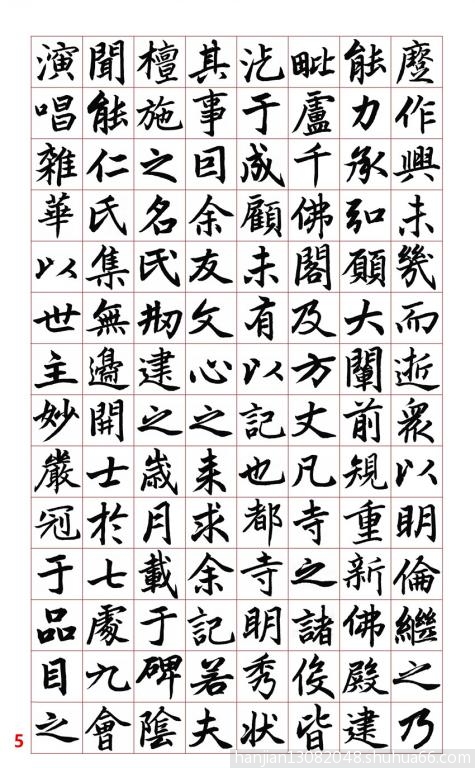 作興未幾而逝衆以明倫繼之乃
能力承弘願大闡前規重新佛殿建
毗盧千佛閣及方丈凡寺之諸役皆
汔于成顧未有以記也都寺明秀狀
其事囙余友文心之来求余記若夫
檀施之名氏刱建之歲月載于碑陰
聞能仁氏集無邊開士於七處九會
演唱雜華以世主妙嚴冠于品目之
5
hanjian13082048.shuhua66.com